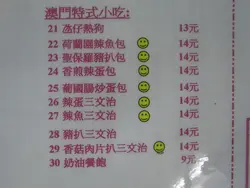 澳門特式小吃:
21 氹仔熱狗 13元
22 荷蘭園辣魚包 14元
23 聖保羅豬扒包 14元
24 香煎辣蛋包 14元
25 葡國腸炒蛋包 14元
26 辣蛋三文治 14元
27 辣魚三文治 14元
28 豬扒三文治 14元
29 香菇肉片扒三文治 30元
30 奶油餐飽 9元